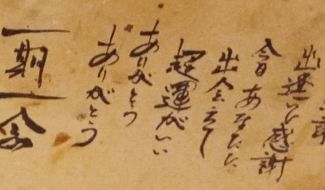 出逢いに感謝
今日あなたに
出会えて
超運がいい
ありがとう
ありがとう
一期一会